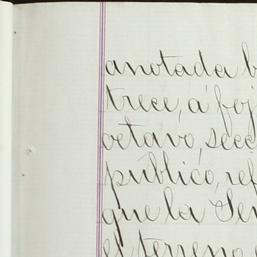 anotada b
trece, á foj
octavo, secc
público, ref
que la Señ
el terreno